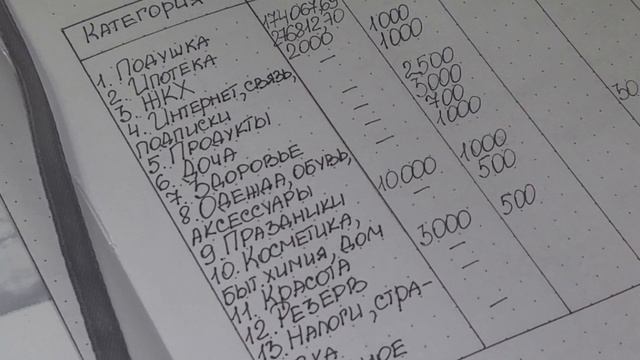 КАТЕГОРИЯ
1. ПОДУШКА 17406,69 1000
2. ИПОТЕКА 27681270 1000
3. ЖКХ 2000
4. ИНТЕРНЕТ, СВЯЗЬ, — 2500
ПОДПИСКИ
5. ПРОДУКТЫ — 5000
6. ДОЧА — 700
7. ЗДОРОВЬЕ — 1000
8. ОДЕЖДА, ОБУВЬ, —
АКСЕССУАРЫ
9. ПРАЗДНИКИ 10.000 1000
10. КОСМЕТИКА, — 500
БЫТ. ХИМИЯ, ДОМ
11. КРАСОТА 5000 500
12. РЕЗЕРВ —
13. НАЛОГИ, СТРА- —